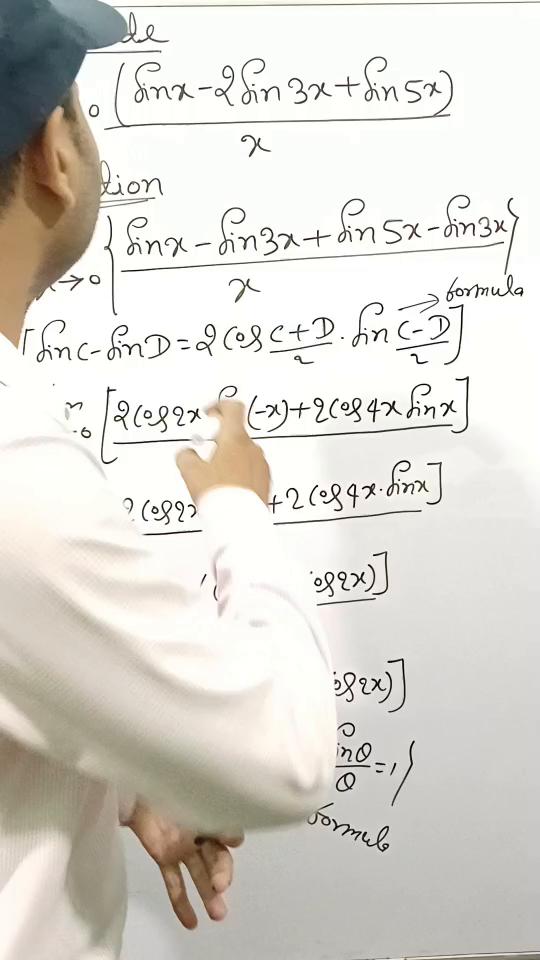 (sinx-2sin3x+sin5x)
x
{sinx-sin3x+sin5x-sin3x}
x→0 x
formula
[sinC-sinD=2cos C+D/2 . sin C-D/2]
[2cos2x (-x)+2cos4x sinx]
2cos2x +2cos4x.sinx]
cos2x)]
cos2x)]
sinθ/θ=1}
formula